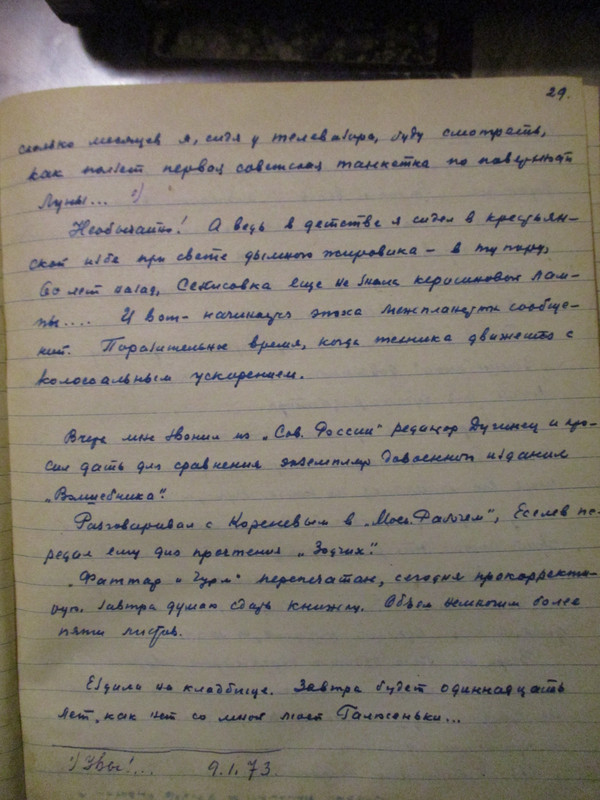 29.
сколько месяцев я, сидя у телевизора, буду смотреть,
как ползет первая советская танкетка по поверхности
Луны... ¹)
Необычайно! А ведь в детстве я сидел в крестьян-
ской избе при свете дымного жировика – в ту пору,
60 лет назад, Секисовка еще не знала керосиновых лам-
пы.... И вот – начинается эпоха межпланетных сообще-
ний. Поразительное время, когда техника движется с
колоссальным ускорением.
Вчера мне звонил из „Сов. России" редактор Дугинец и про-
сил дать для сравнения экземпляр довоенного издания
„Волшебника".
Разговаривал с Кореневым в „Моск. Рабочем", Еселев пе-
редал ему для прочтения „Зодчих".
„Фаттар и Гурм" перепечатан, сегодня прокорректи-
рую. Завтра думаю сдать книжку. Объем немногим более
пяти листов.
Ездили на кладбище. Завтра будет одиннадцать
лет, как нет со мной моей Галюсеньки...
¹) Увы!... 9.1.73.